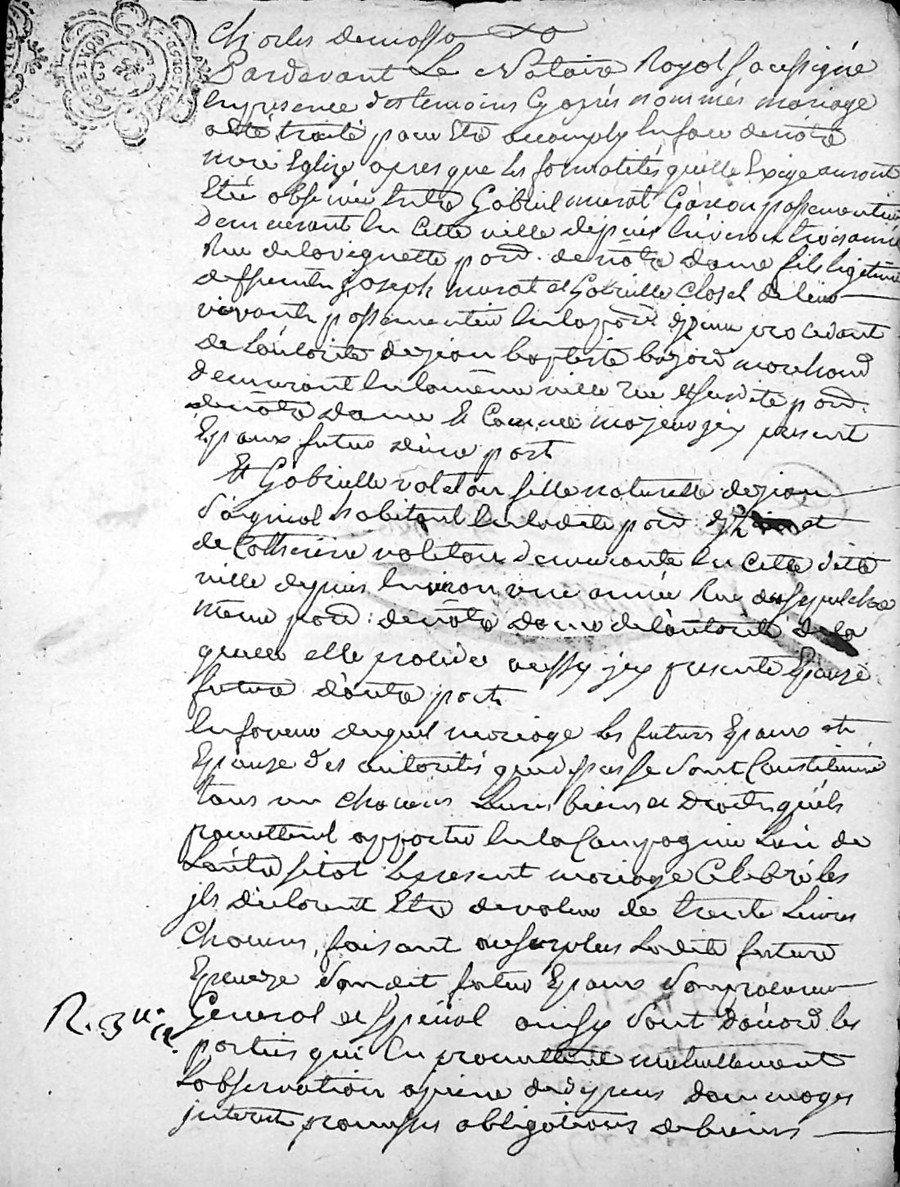 Pardevant Le Notaire Royal soussigné
En presence des temoins Cy après nommés mariage
a été traité pour Etre accomply En face de notre
mere Eglise apres que les formalités qu'elle Exige auront
Eté observée Entre Gabriel murat Garcon passementier
Demeurant En Cette ville depuis Environ trois année
Rue de la vignette parr. de notre dame fils legitime
deffeunt Joseph murat et Gabrielle Closel de leur
vivant passementier En la parr. procedant
de L'autorité de jean baptiste bajard marchand
demeurant En la meme ville rue et susdite parr.
de notre dame Et Comme majeur jcy present
Epoux futur d'une part
Et Gabrielle valetou fille naturelle de jean
habitant En ladite parr. et
de Catherine valetou demeurante En Cette ditte
ville depuis Environ une année Rue du sepulchre
meme parr. de notre dame de l'autorité de la
quelle elle procéde aussy jcy presente Epouze
future d'autre part
En faveur duquel mariage les futurs Epoux et
Epouze des autorités que dessus se sont Constitués
tous un chacuns Leurs biens et droits qu'ils
promettent apporter En la Compagnie L'un de
L'autre sitot le present mariage Celebré les
jls declarent Etre de valeur de trente Livres
Chacuns, faisant au surplus Ladite future
Epouze Sondit futur Epoux Son procureur
General et Special ainsy Sont d'acord les
parties qui En promettent mutuellement
L'observation a peine de depens dommages
interet promesses obligations de biens
R. 3